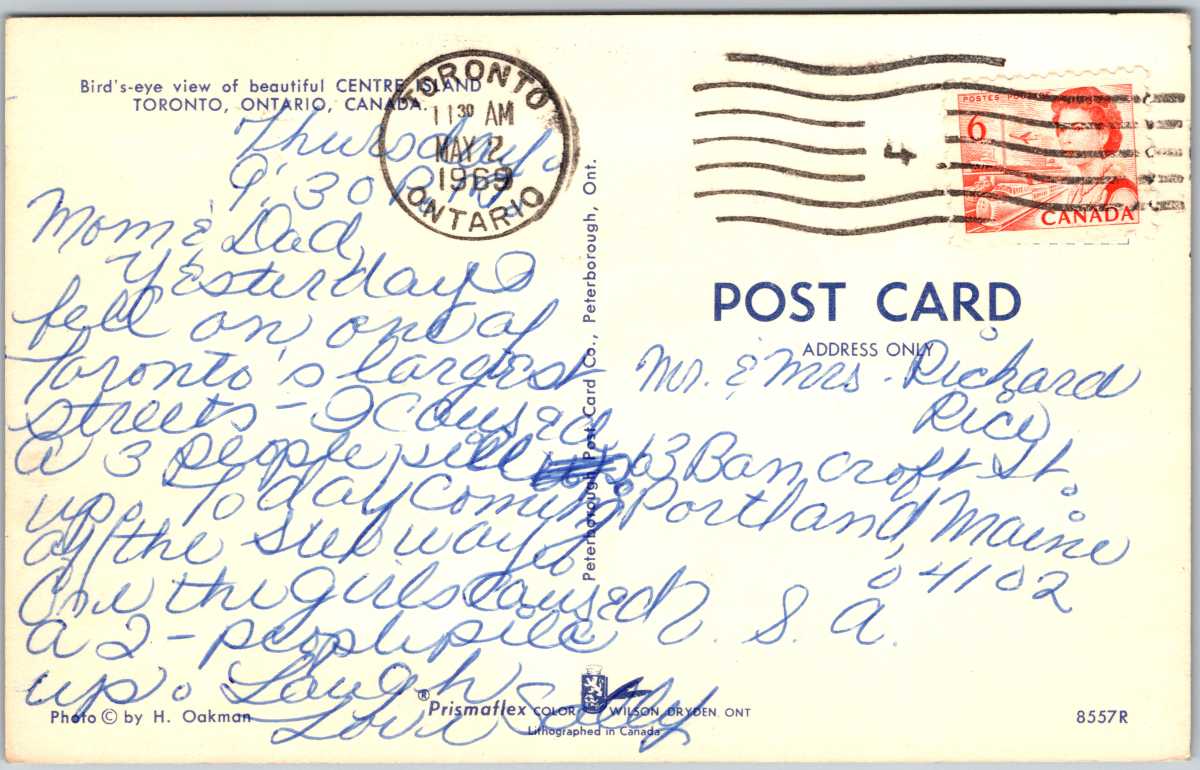 Bird's-eye view of beautiful CENTRE ISLAND
TORONTO, ONTARIO, CANADA.
TORONTO
11 30 AM
MAY 2
1969
ONTARIO
4
POSTES POSTAGE
6
CANADA
Thursday
9:30 P.M.
Mom & Dad,
Yesterday I
fell on one of
Toronto's largest
streets - I caused
a 3 people pill
up. Today coming
off the subway
one the girls caused
a 2 - people pile
up. Laugh
Love Sally
Peterborough Post Card Co., Peterborough, Ont.
POST CARD
ADDRESS ONLY
Mr. & Mrs. Richard
Rice
63 Bancroft St.
Portland, Maine
04102
U. S. A.
Photo © by H. Oakman
® Prismaflex COLOR WILSON, DRYDEN, ONT
Lithographed in Canada
8557R